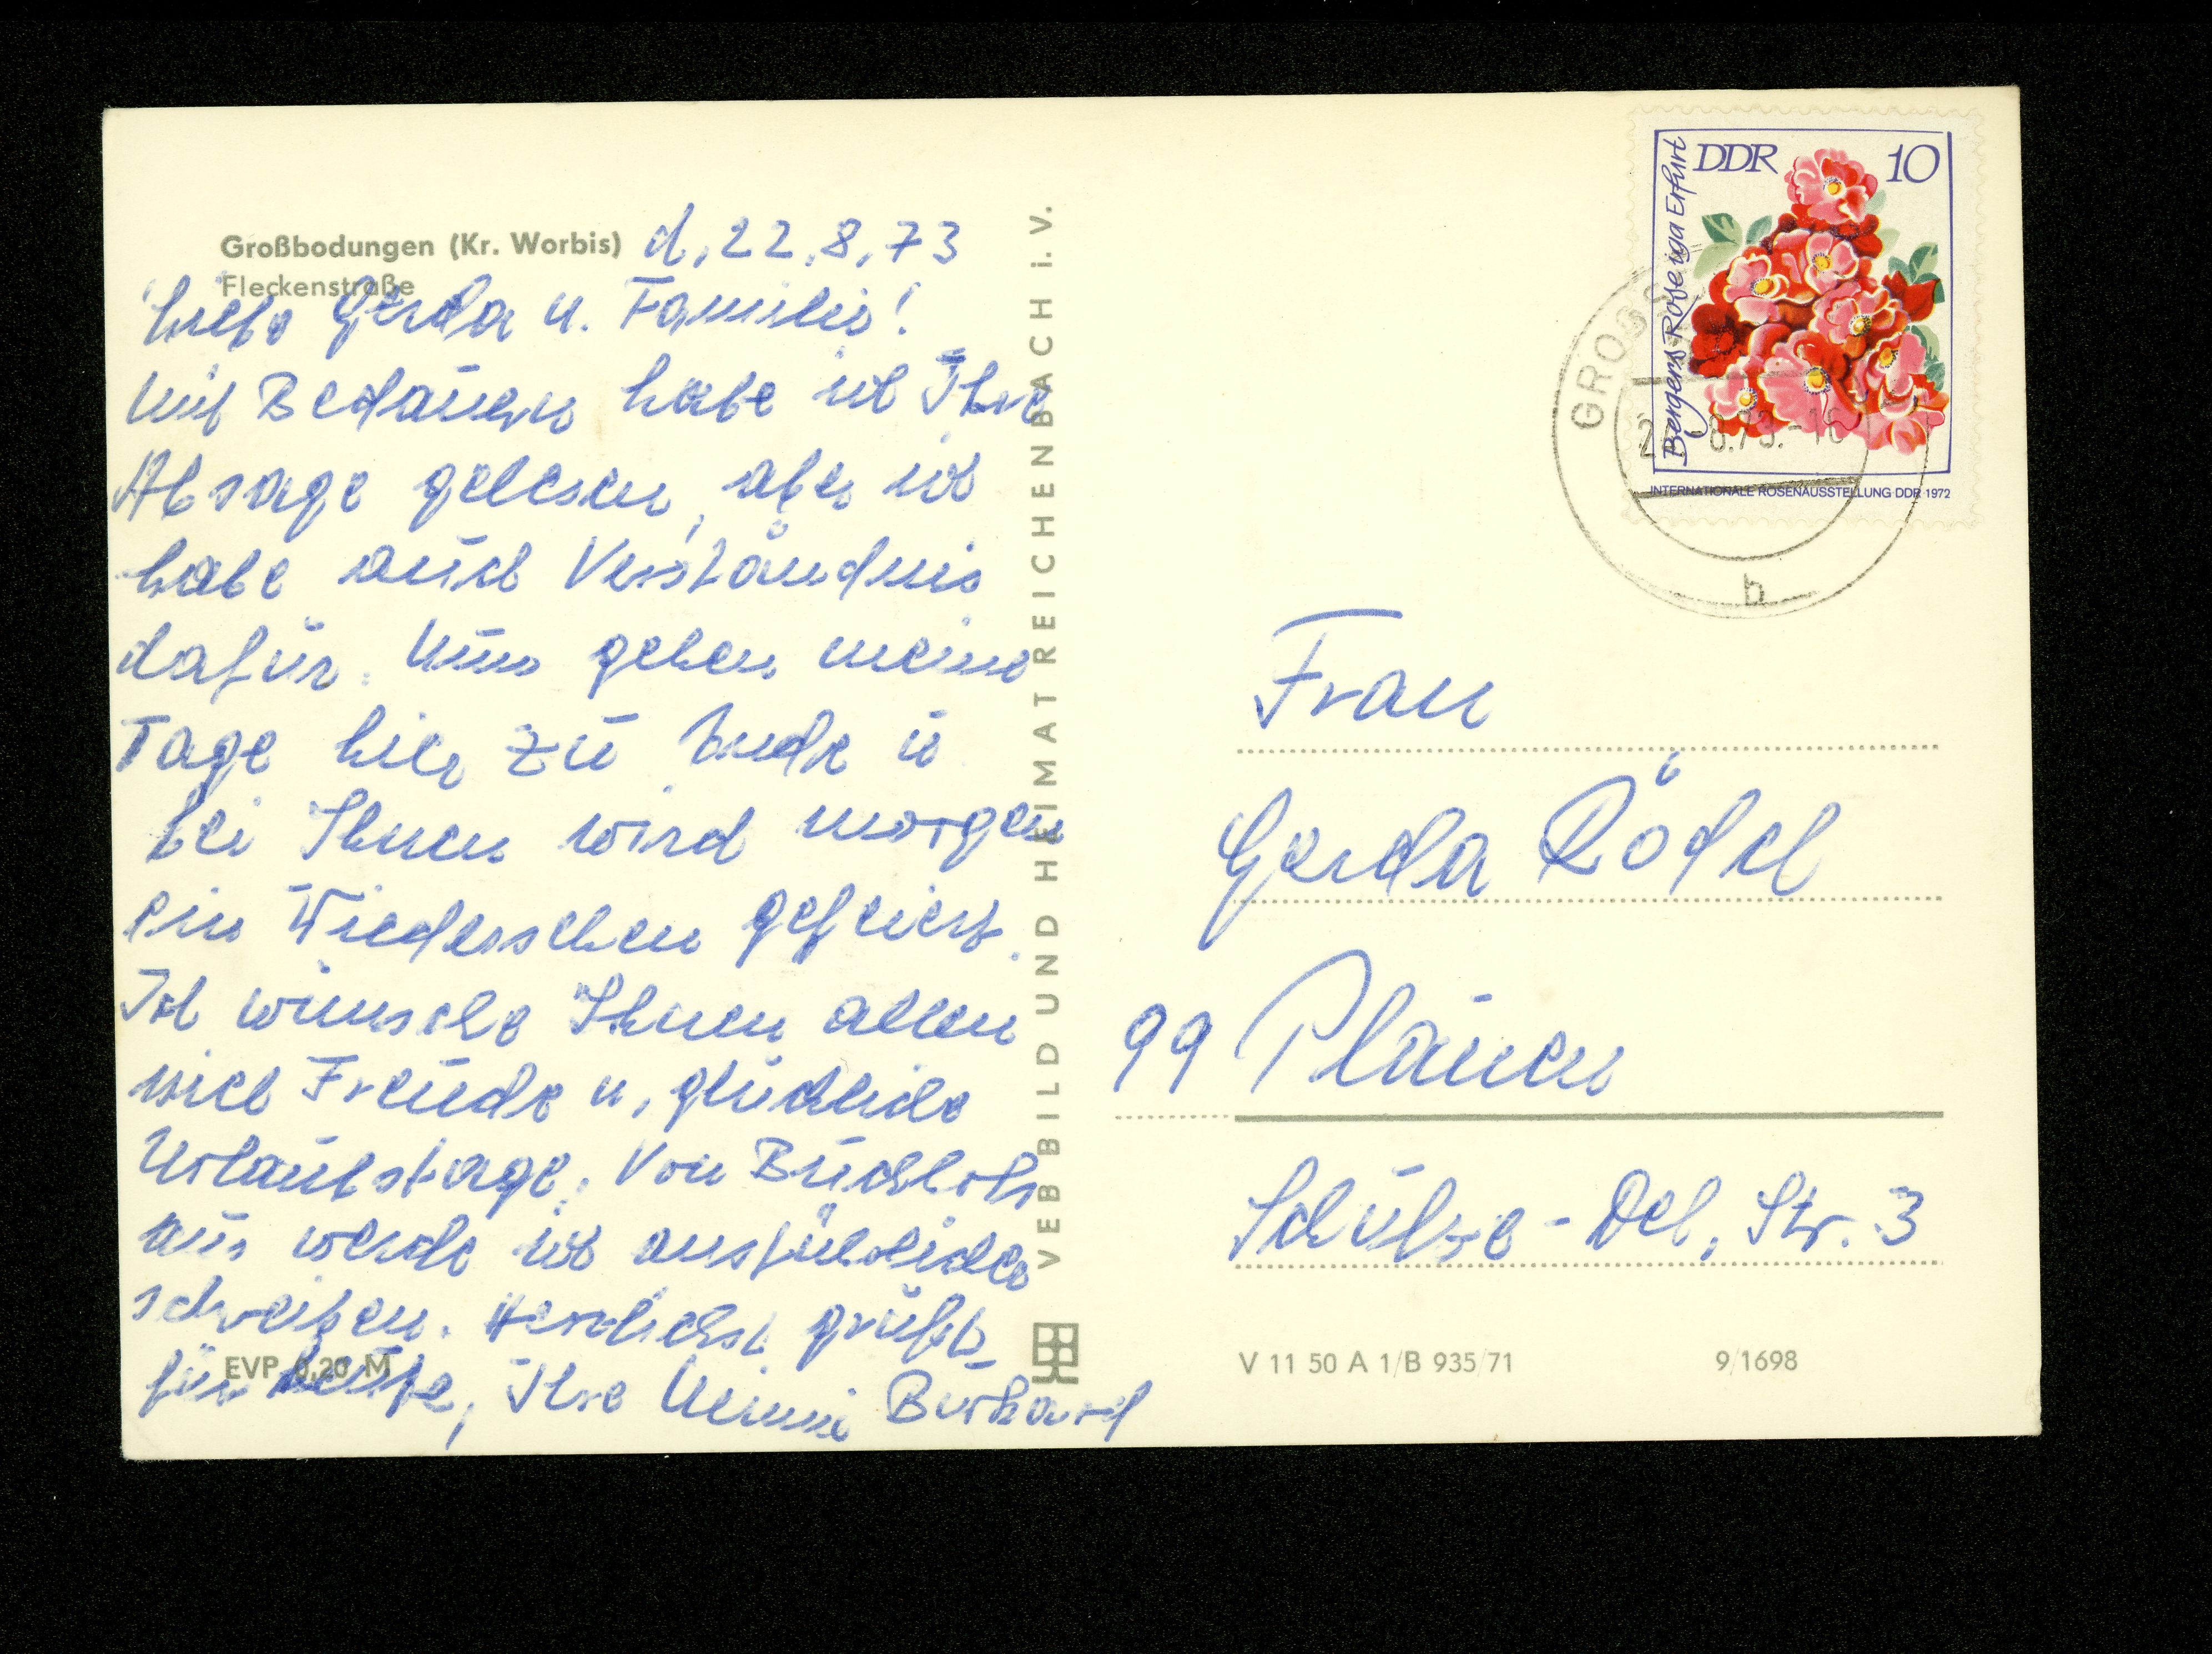 Großbodungen (Kr. Worbis) d. 22.8.73
Fleckenstraße
Liebe Gerda u. Familie!
Mit Bedauern habe ich Ihre
Absage gelesen, aber ich
habe auch Verständnis
dafür. Nun gehen meine
Tage hier zu Ende u
bei Ihnen wird morgen
ein Wiedersehen gefeiert.
Ich wünsche Ihnen allen
viel Freude u. glückliche
Urlaubstage. Von Buchholz
aus werde ich ausführlicher
schreiben. Herzlichst grüßt
für heute, Ihre Burkard
EVP 0,20 M
VEB BILD UND HEIMAT REICHENBACH i. V.
DDR 10
Bergers Rose iga Erfurt
INTERNATIONALE ROSENAUSSTELLUNG DDR 1972
8.73.-16
b
Frau
Gerda Rödel
99 Plauen
Schulze-Del. Str. 3
V 11 50 A 1/B 935/71 9/1698